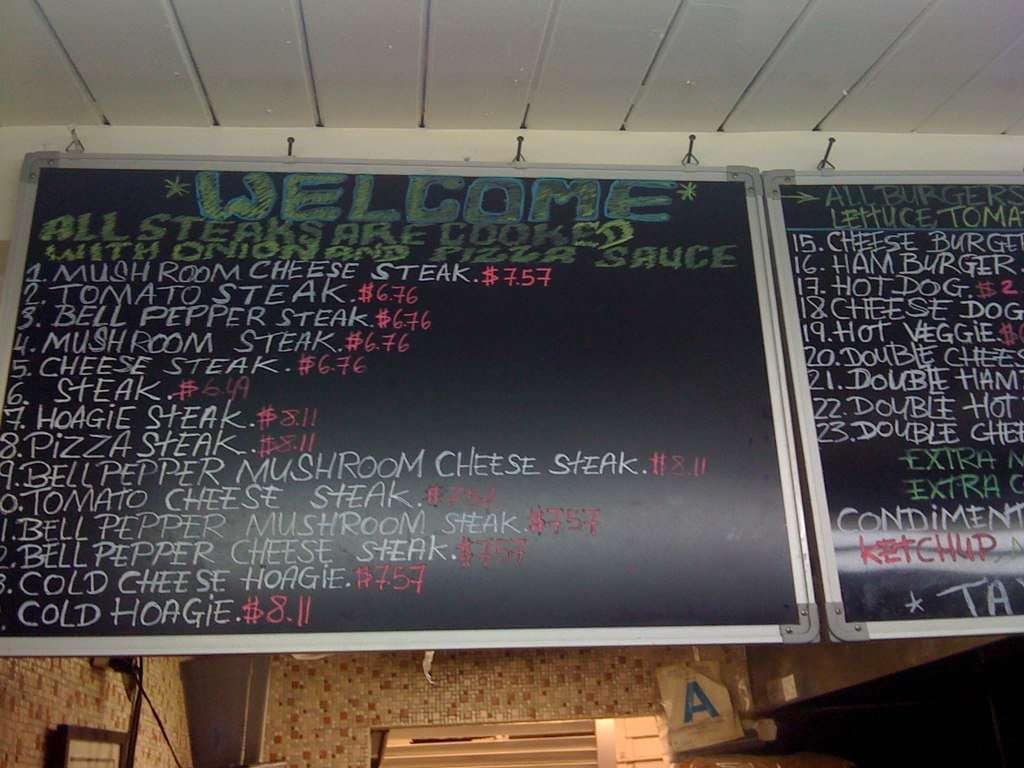 * WELCOME *
ALL STEAKS ARE COOKED
WITH ONION AND PIZZA SAUCE
1. MUSHROOM CHEESE STEAK. $7.57
2. TOMATO STEAK. $6.76
3. BELL PEPPER STEAK. $6.76
4. MUSHROOM STEAK. $6.76
5. CHEESE STEAK. $6.76
6. STEAK. $6.49
7. HOAGIE STEAK. $8.11
8. PIZZA STEAK. $8.11
9. BELL PEPPER MUSHROOM CHEESE STEAK. $8.11
0. TOMATO CHEESE STEAK.
1. BELL PEPPER MUSHROOM STEAK. $7.57
2. BELL PEPPER CHEESE STEAK. $7.57
3. COLD CHEESE HOAGIE. $7.57
. COLD HOAGIE. $8.11
→ ALL BURGERS
LETTUCE, TOMA
15. CHEESE BURGE
16. HAMBURGER.
17. HOT DOG. $2
18. CHEESE DOG
19. HOT VEGGIE. $
20. DOUBLE CHEES
21. DOUBLE HAM
22. DOUBLE HOT
23. DOUBLE CHE
EXTRA
EXTRA
CONDIMENT
KETCHUP
* TA
A